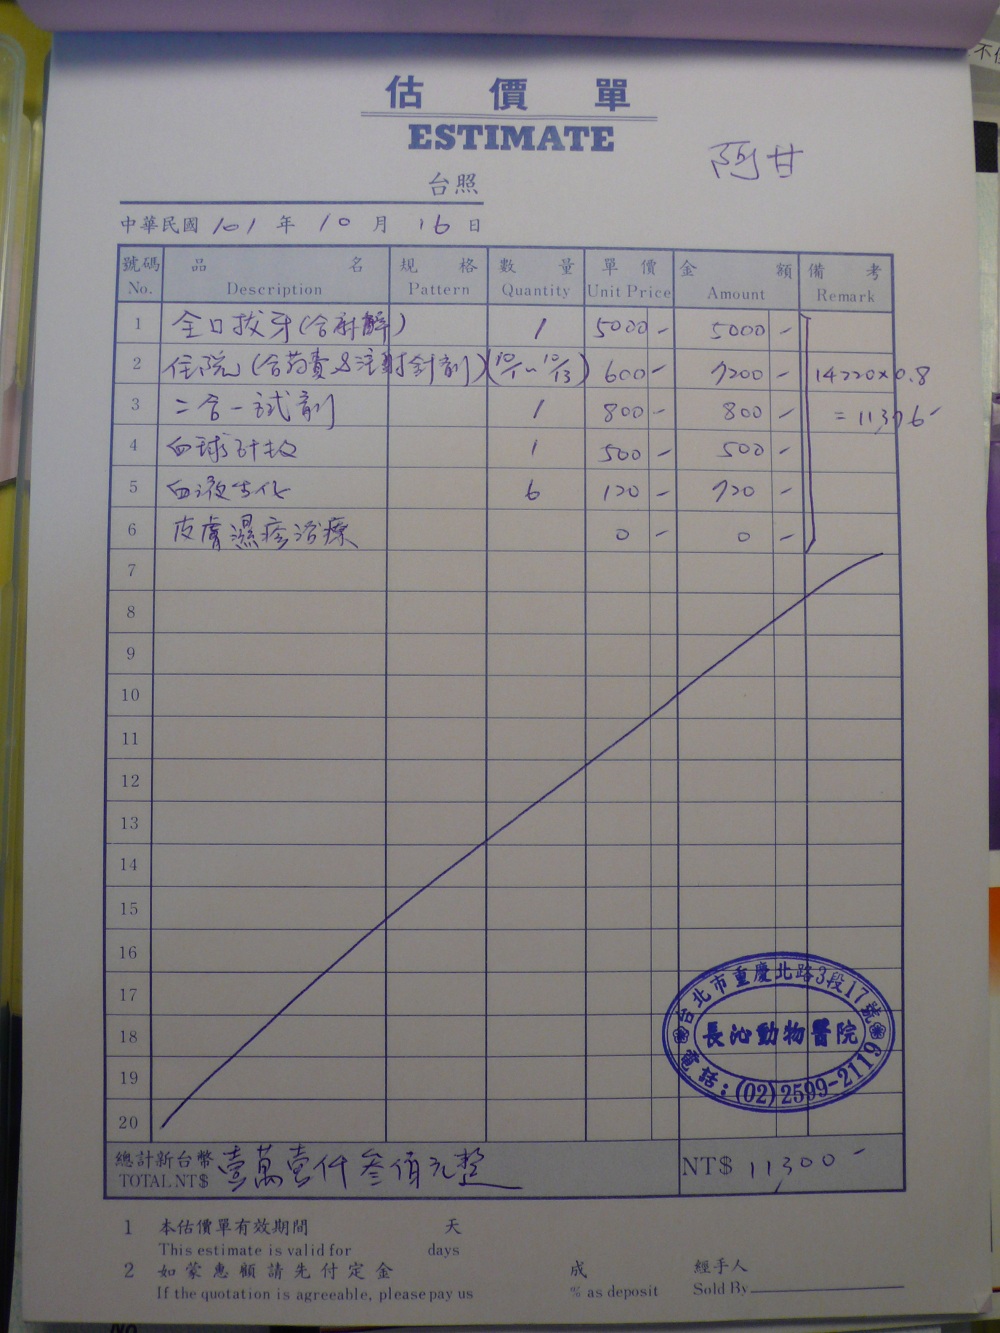 估價單
ESTIMATE
阿甘
台照
中華民國 101 年 10 月 16 日
號碼 品名 規格 數量 單價 金額 備考
No. Description Pattern Quantity Unit Price Amount Remark
1 全口拔牙(含麻醉) 1 5000- 5000-
2 住院(含药費及注射針劑)(10/1~10/13) 600- 7200- 14220×0.8
3 二合一試劑 1 800- 800- = 11376-
4 血球計數 1 500- 500-
5 血液生化 6 120- 720-
6 皮膚濕疹治療 0- 0-
7
8
9
10
11
12
13
14
15
16
17
18
19
20
台北市重慶北路3段17號
長沁動物醫院
電話:(02)2599-2119
總計新台幣 壹萬壹仟叁佰元整
TOTAL NT$ NT$ 11,300-
1 本估價單有效期間 天
This estimate is valid for days
2 如蒙惠顧請先付定金 成 經手人
If the quotation is agreeable, please pay us % as deposit Sold By